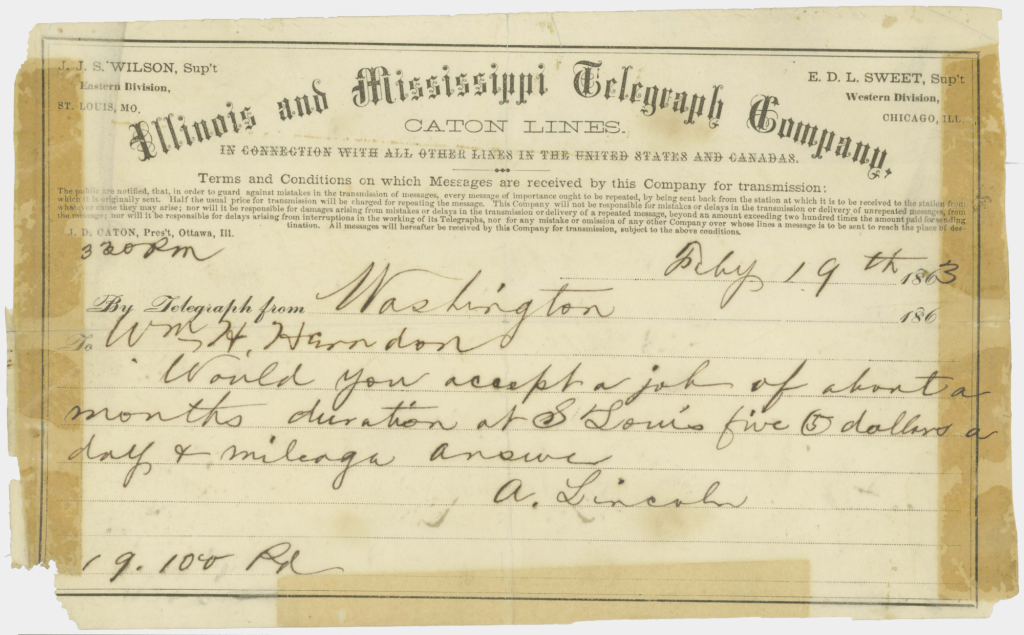 J. J. S. WILSON, Sup't
Eastern Division,
ST. LOUIS, MO.
E. D. L. SWEET, Sup't
Western Division,
CHICAGO, ILL.
Illinois and Mississippi Telegraph Company,
CATON LINES.
IN CONNECTION WITH ALL OTHER LINES IN THE UNITED STATES AND CANADAS.
Terms and Conditions on which Messages are received by this Company for transmission:
The public are notified, that, in order to guard against mistakes in the transmission of messages, every message of importance ought to be repeated, by being sent back from the station at which it is to be received to the station from
which it is originally sent. Half the usual price for transmission will be charged for repeating the message. This Company will not be responsible for mistakes or delays in the transmission or delivery of unrepeated messages, from
whatever cause they may arise; nor will it be responsible for damages arising from mistakes or delays in the transmission or delivery of a repeated message, beyond an amount exceeding two hundred times the amount paid for sending
the message; nor will it be responsible for delays arising from interruptions in the working of its Telegraphs, nor for any mistake or omission of any other Company over whose lines a message is to be sent to reach the place of des-
tination. All messages will hereafter be received by this Company for transmission, subject to the above conditions.
J. D. CATON, Pres't, Ottawa, Ill.
3 30 Pm
Feby 19th 1863
By Telegraph from Washington 186
To Wm H. Herndon
Would you accept a job of about a
months duration at St Louis five (5) dollars a
day & mileage Answer
A. Lincoln
19. 100 Pd